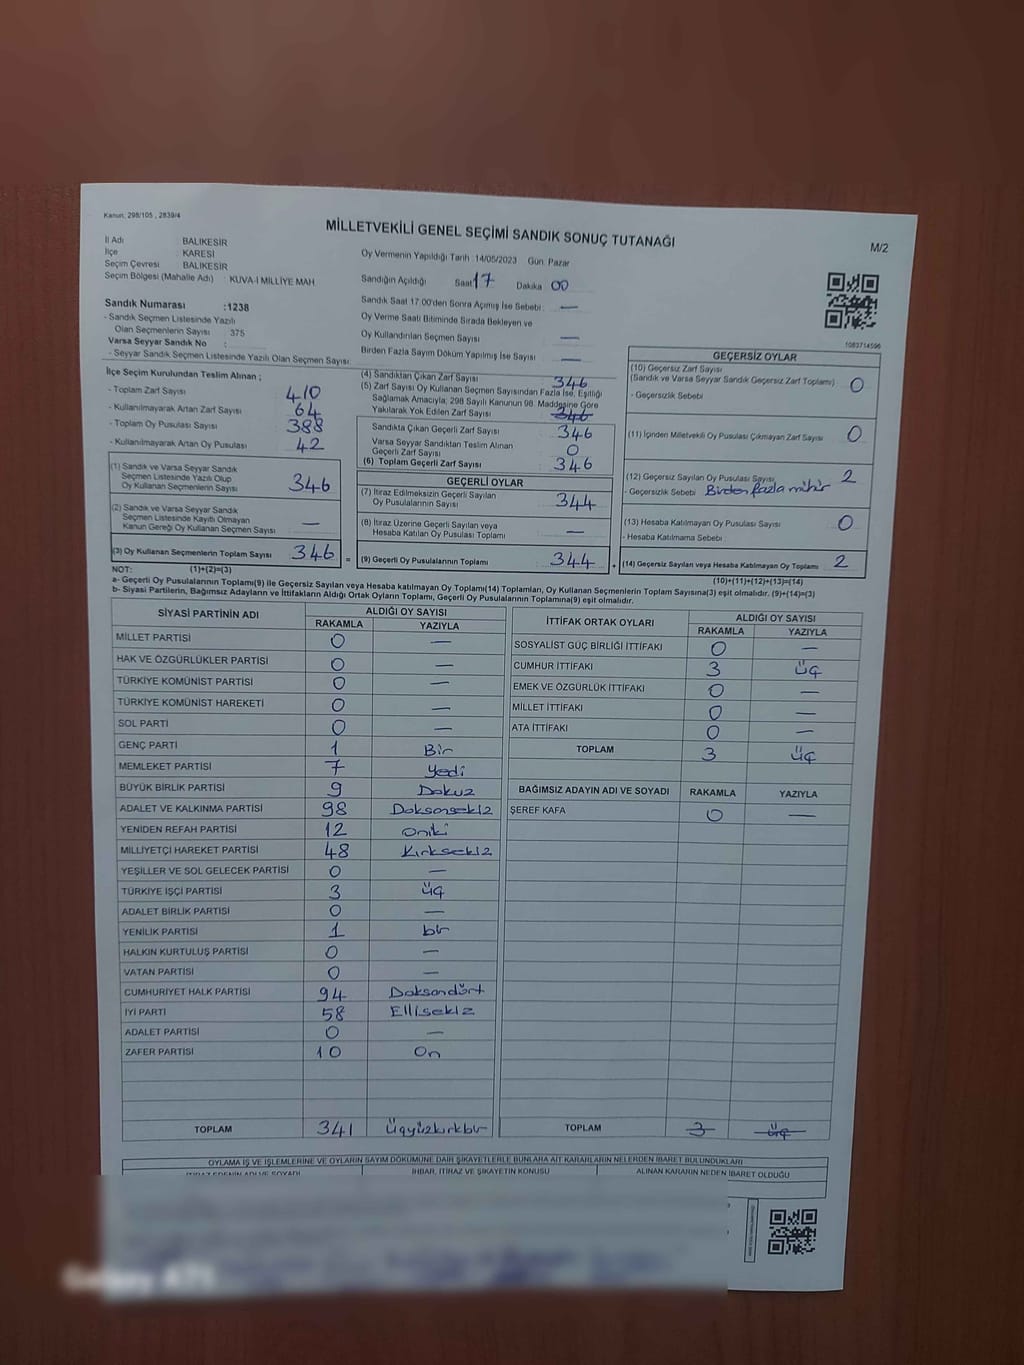 Kanun, 298/105 , 2839/4
MİLLETVEKİLİ GENEL SEÇİMİ SANDIK SONUÇ TUTANAĞI
M/2
İl Adı BALIKESİR
İlçe : KARESİ
Seçim Çevresi : BALIKESİR
Seçim Bölgesi (Mahalle Adı) : KUVA-İ MİLLİYE MAH
Sandık Numarası :1238
- Sandık Seçmen Listesinde Yazılı
Olan Seçmenlerin Sayısı : 375
Varsa Seyyar Sandık No :
- Seyyar Sandık Seçmen Listesinde Yazılı Olan Seçmen Sayısı:
Oy Vermenin Yapıldığı Tarih :14/05/2023 Gün: Pazar
Sandığın Açıldığı Saat 17 Dakika 00
Sandık Saat 17.00'den Sonra Açımış İse Sebebi : —
Oy Verme Saati Bitiminde Sırada Bekleyen ve
Oy Kullandırılan Seçmen Sayısı : —
Birden Fazla Sayım Döküm Yapılmış İse Sayısı : —
1083714596
İlçe Seçim Kurulundan Teslim Alınan ;
- Toplam Zarf Sayısı : 410
- Kullanılmayarak Artan Zarf Sayısı : 64
- Toplam Oy Pusulası Sayısı : 388
- Kullanılmayarak Artan Oy Pusulası : 42
(1) Sandık ve Varsa Seyyar Sandık
Seçmen Listesinde Yazılı Olup
Oy Kullanan Seçmenlerin Sayısı 346
(2) Sandık ve Varsa Seyyar Sandık
Seçmen Listesinde Kayıtlı Olmayan
Kanun Gereği Oy Kullanan Seçmen Sayısı —
(3) Oy Kullanan Seçmenlerin Toplam Sayısı 346 =
(4) Sandıktan Çıkan Zarf Sayısı 346
(5) Zarf Sayısı Oy Kullanan Seçmen Sayısından Fazla İse, Eşitliği
Sağlamak Amacıyla; 298 Sayılı Kanunun 98. Maddesine Göre
Yakılarak Yok Edilen Zarf Sayısı 346
Sandıkta Çıkan Geçerli Zarf Sayısı 346
Varsa Seyyar Sandıktan Teslim Alınan
Geçerli Zarf Sayısı 0
(6) Toplam Geçerli Zarf Sayısı 346
GEÇERLİ OYLAR
(7) İtiraz Edilmeksizin Geçerli Sayılan
Oy Pusulalarının Sayısı 344
(8) İtiraz Üzerine Geçerli Sayılan veya
Hesaba Katılan Oy Pusulası Toplamı —
(9) Geçerli Oy Pusulalarının Toplamı 344 +
GEÇERSİZ OYLAR
(10) Geçersiz Zarf Sayısı
(Sandık ve Varsa Seyyar Sandık Geçersiz Zarf Toplamı) 0
- Geçersizlik Sebebi
(11) İçinden Milletvekili Oy Pusulası Çıkmayan Zarf Sayısı 0
(12) Geçersiz Sayılan Oy Pusulası Sayısı 2
- Geçersizlik Sebebi : Birden fazla mühür
(13) Hesaba Katılmayan Oy Pusulası Sayısı 0
- Hesaba Katılmama Sebebi :
(14) Geçersiz Sayılan veya Hesaba Katılmayan Oy Toplamı 2
NOT: (1)+(2)=(3) (10)+(11)+(12)+(13)=(14)
a- Geçerli Oy Pusulalarının Toplamı(9) ile Geçersiz Sayılan veya Hesaba katılmayan Oy Toplamı(14) Toplamları, Oy Kullanan Seçmenlerin Toplam Sayısına(3) eşit olmalıdır. (9)+(14)=(3)
b- Siyasi Partilerin, Bağımsız Adayların ve İttifakların Aldığı Ortak Oyların Toplamı, Geçerli Oy Pusulalarının Toplamına(9) eşit olmalıdır.
SİYASİ PARTİNİN ADI ALDIĞI OY SAYISI
RAKAMLA YAZIYLA
MİLLET PARTİSİ 0 —
HAK VE ÖZGÜRLÜKLER PARTİSİ 0 —
TÜRKİYE KOMÜNİST PARTİSİ 0 —
TÜRKİYE KOMÜNİST HAREKETİ 0 —
SOL PARTİ 0 —
GENÇ PARTİ 1 Bir
MEMLEKET PARTİSİ 7 Yedi
BÜYÜK BİRLİK PARTİSİ 9 Dokuz
ADALET VE KALKINMA PARTİSİ 98 Doksansekiz
YENİDEN REFAH PARTİSİ 12 oniki
MİLLİYETÇİ HAREKET PARTİSİ 48 Kırksekiz
YEŞİLLER VE SOL GELECEK PARTİSİ 0 —
TÜRKİYE İŞÇİ PARTİSİ 3 üç
ADALET BİRLİK PARTİSİ 0 —
YENİLİK PARTİSİ 1 bir
HALKIN KURTULUŞ PARTİSİ 0 —
VATAN PARTİSİ 0 —
CUMHURİYET HALK PARTİSİ 94 Doksandört
İYİ PARTİ 58 Ellisekiz
ADALET PARTİSİ 0 —
ZAFER PARTİSİ 10 On
TOPLAM 341 Üçyüzkırkbir
İTTİFAK ORTAK OYLARI ALDIĞI OY SAYISI
RAKAMLA YAZIYLA
SOSYALİST GÜÇ BİRLİĞİ İTTİFAKI 0 —
CUMHUR İTTİFAKI 3 üç
EMEK VE ÖZGÜRLÜK İTTİFAKI 0 —
MİLLET İTTİFAKI 0 —
ATA İTTİFAKI 0 —
TOPLAM 3 üç
BAĞIMSIZ ADAYIN ADI VE SOYADI RAKAMLA YAZIYLA
ŞEREF KAFA 0 —
TOPLAM 3 üç
OYLAMA İŞ VE İŞLEMLERİNE VE OYLARIN SAYIM DÖKÜMÜNE DAİR ŞİKAYETLERLE BUNLARA AİT KARARLARIN NELERDEN İBARET BULUNDUKLARI
İTİRAZ EDENİN ADI VE SOYADI İHBAR, İTİRAZ VE ŞİKAYETİN KONUSU ALINAN KARARIN NEDEN İBARET OLDUĞU